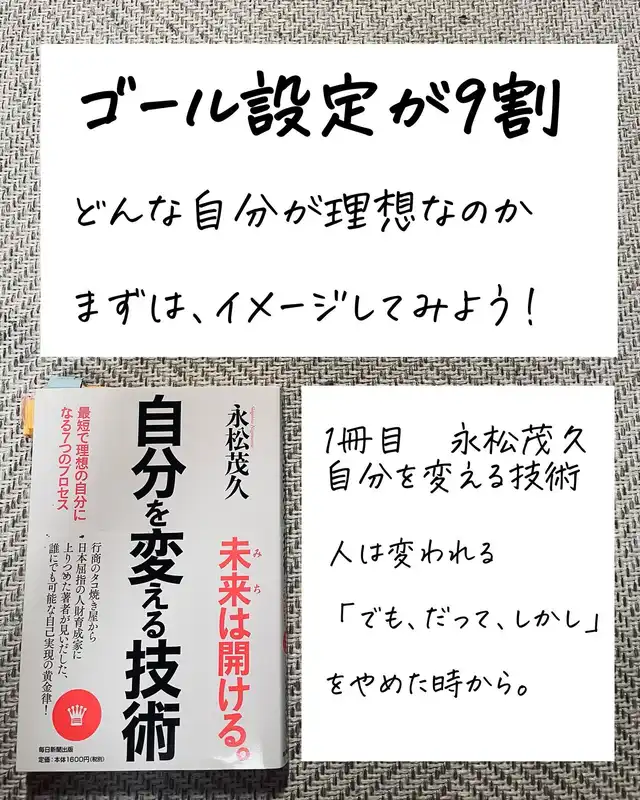 ゴール設定が9割
どんな自分が理想なのか
まずは、イメージしてみよう!
永松茂久
未来は開ける。
みち
自分を変える技術
最短で理想の自分に
なる7つのプロセス
行商のタコ焼き屋から
日本屈指の人財育成家に
上りつめた著者が見いだした、
誰にでも可能な自己実現の黄金律!
毎日新聞出版
定価:本体1600円(税別)
1冊目 永松茂久
自分を変える技術
人は変われる
「でも、だって、しかし」
をやめた時から。